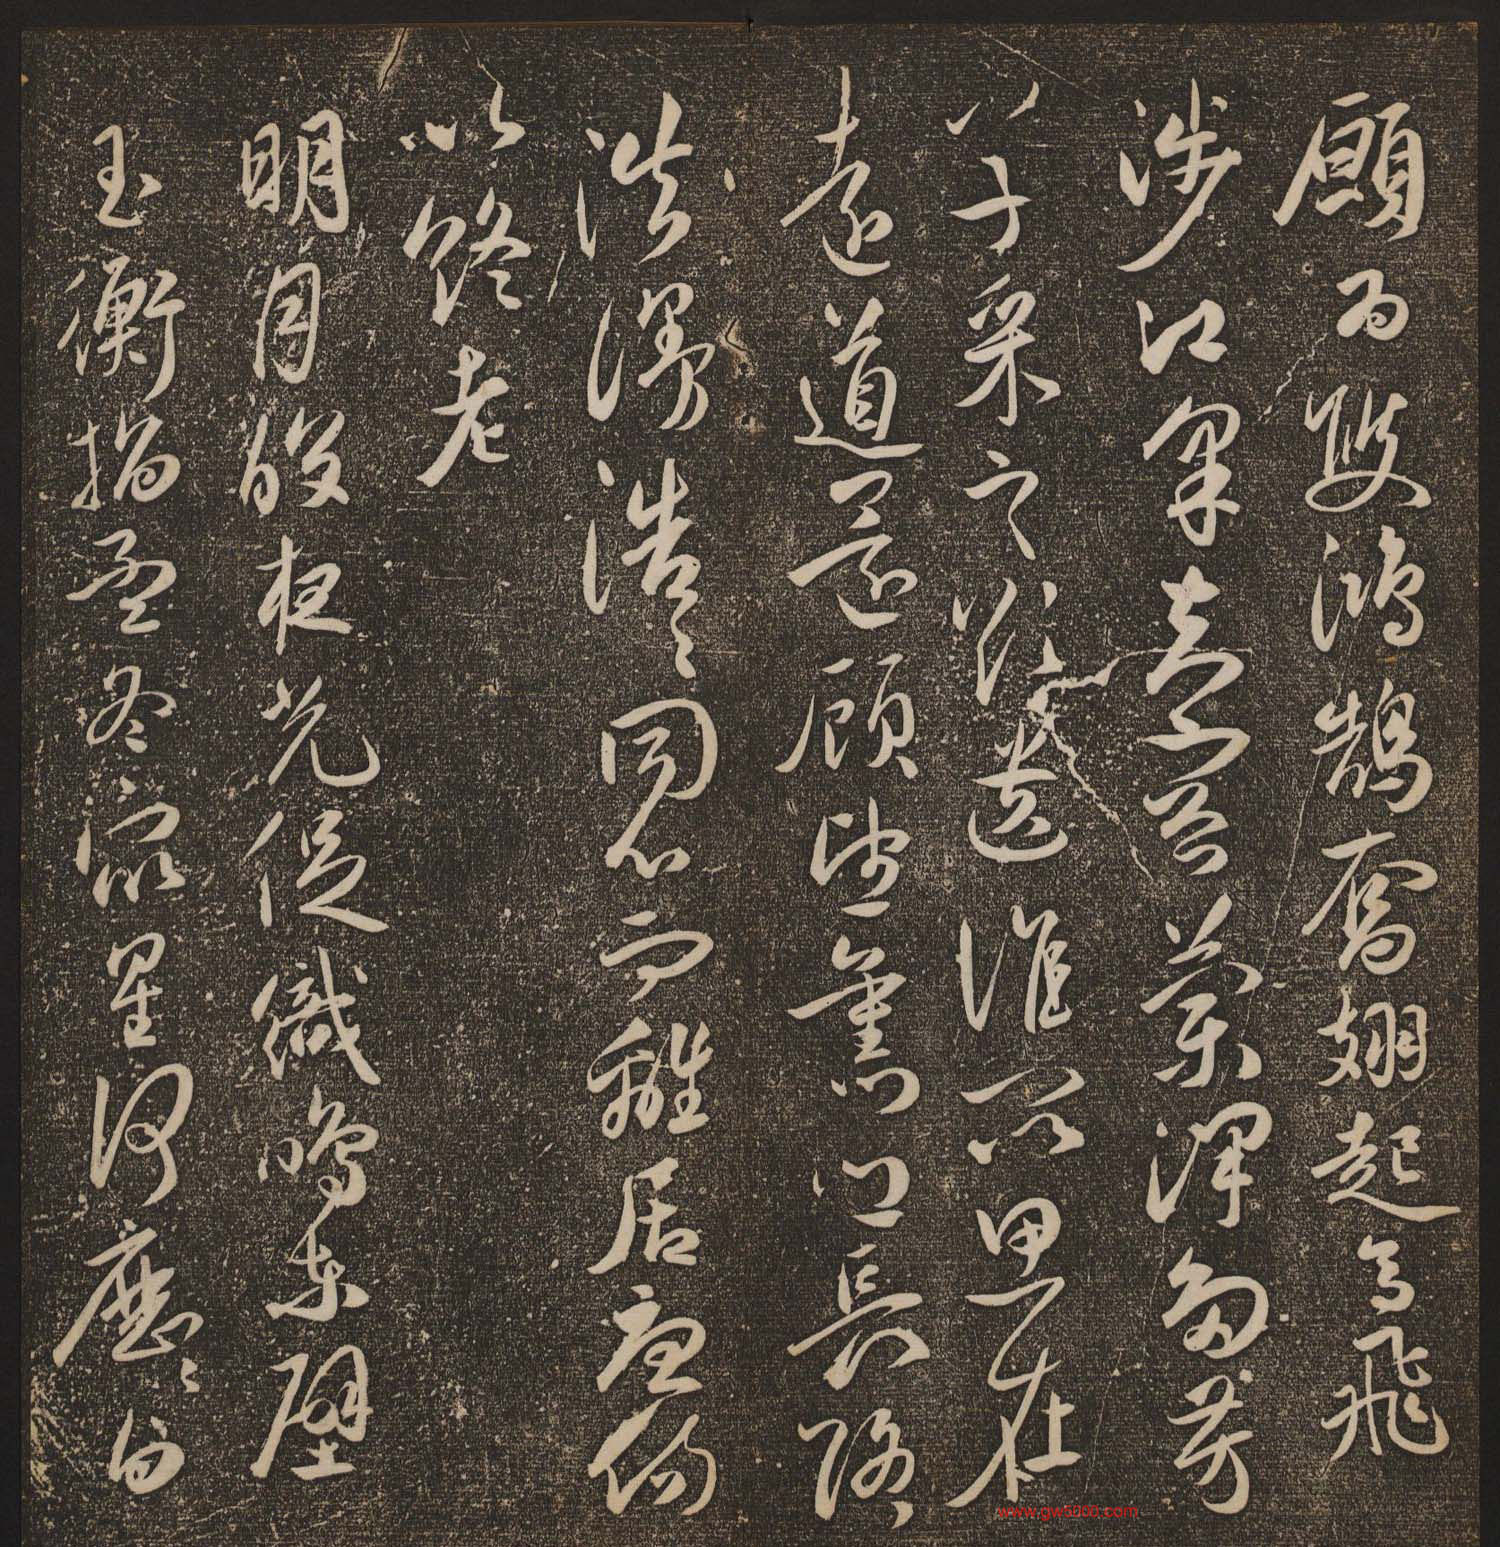 願為雙鴻鵠奮翅起高飛
涉江采芙蓉蘭澤多芳
草采之欲遺誰所思在
遠道還顧望舊鄉長路
浩漫浩〻同心而離居憂傷
以終老
明月皎夜光促織鳴東壁
玉衡指孟冬眾星何歷〻白
www.gw5000.com